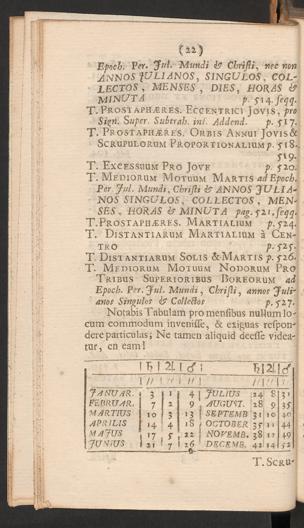 (22)
Epoch. Per. Jul. Mundi & Christi, nec non
ANNOS JULIANOS, SINGULOS, COL-
LECTOS, MENSES, DIES, HORAS &
MINUTA p. 514. seqq.
T. PROSTAPHÆRES. ECCENTRICI JOVIS, pro
Sign. Super. Subtrah. inf. Addend. p. 517.
T. PROSTAPHÆRES. ORBIS ANNUI JOVIS &
SCRUPULORUM PROPORTIONALIUM p. 518.
519.
T. EXCESSUUM PRO JOVE p. 520.
T. MEDIORUM MOTUUM MARTIS ad Epoch.
Per Jul. Mundi, Christi & ANNOS JULIA-
NOS SINGULOS, COLLECTOS, MEN-
SES, HORAS & MINUTA pag. 521. seqq.
T. PROSTAPHÆRES. MARTIALIUM p. 524.
T. DISTANTIARUM MARTIALIUM à CEN-
TRO p. 525.
T. DISTANTIARUM SOLIS & MARTIS p. 526.
T. MEDIORUM MOTUUM NODORUM PRO
TRIBUS SUPERIORIBUS BOREORUM ad
Epoch. Per. Jul. Mundi, Christi, annos Juli-
anos Singulos & Collectos p. 527.
Notabis Tabulam pro mensibus nullum lo-
cum commodum invenisse, & exiguas respon-
dere particulas; Ne tamen aliquid deesse videa-
tur, en eam!
♄ ♃ ♂ ♄ ♃ ♂
JANUAR. 3 1 4 JULIUS 24 8 31
FEBRUAR. 7 2 9 AUGUST. 28 9 35
MARTIUS 10 3 13 SEPTEMB 31 10 40
APRILIS 14 4 18 OCTOBER 35 11 44
MAJUS 17 5 22 NOVEMB. 38 12 49
JUNIUS 21 7 26 DECEMB. 42 14 52
T. SCRU-